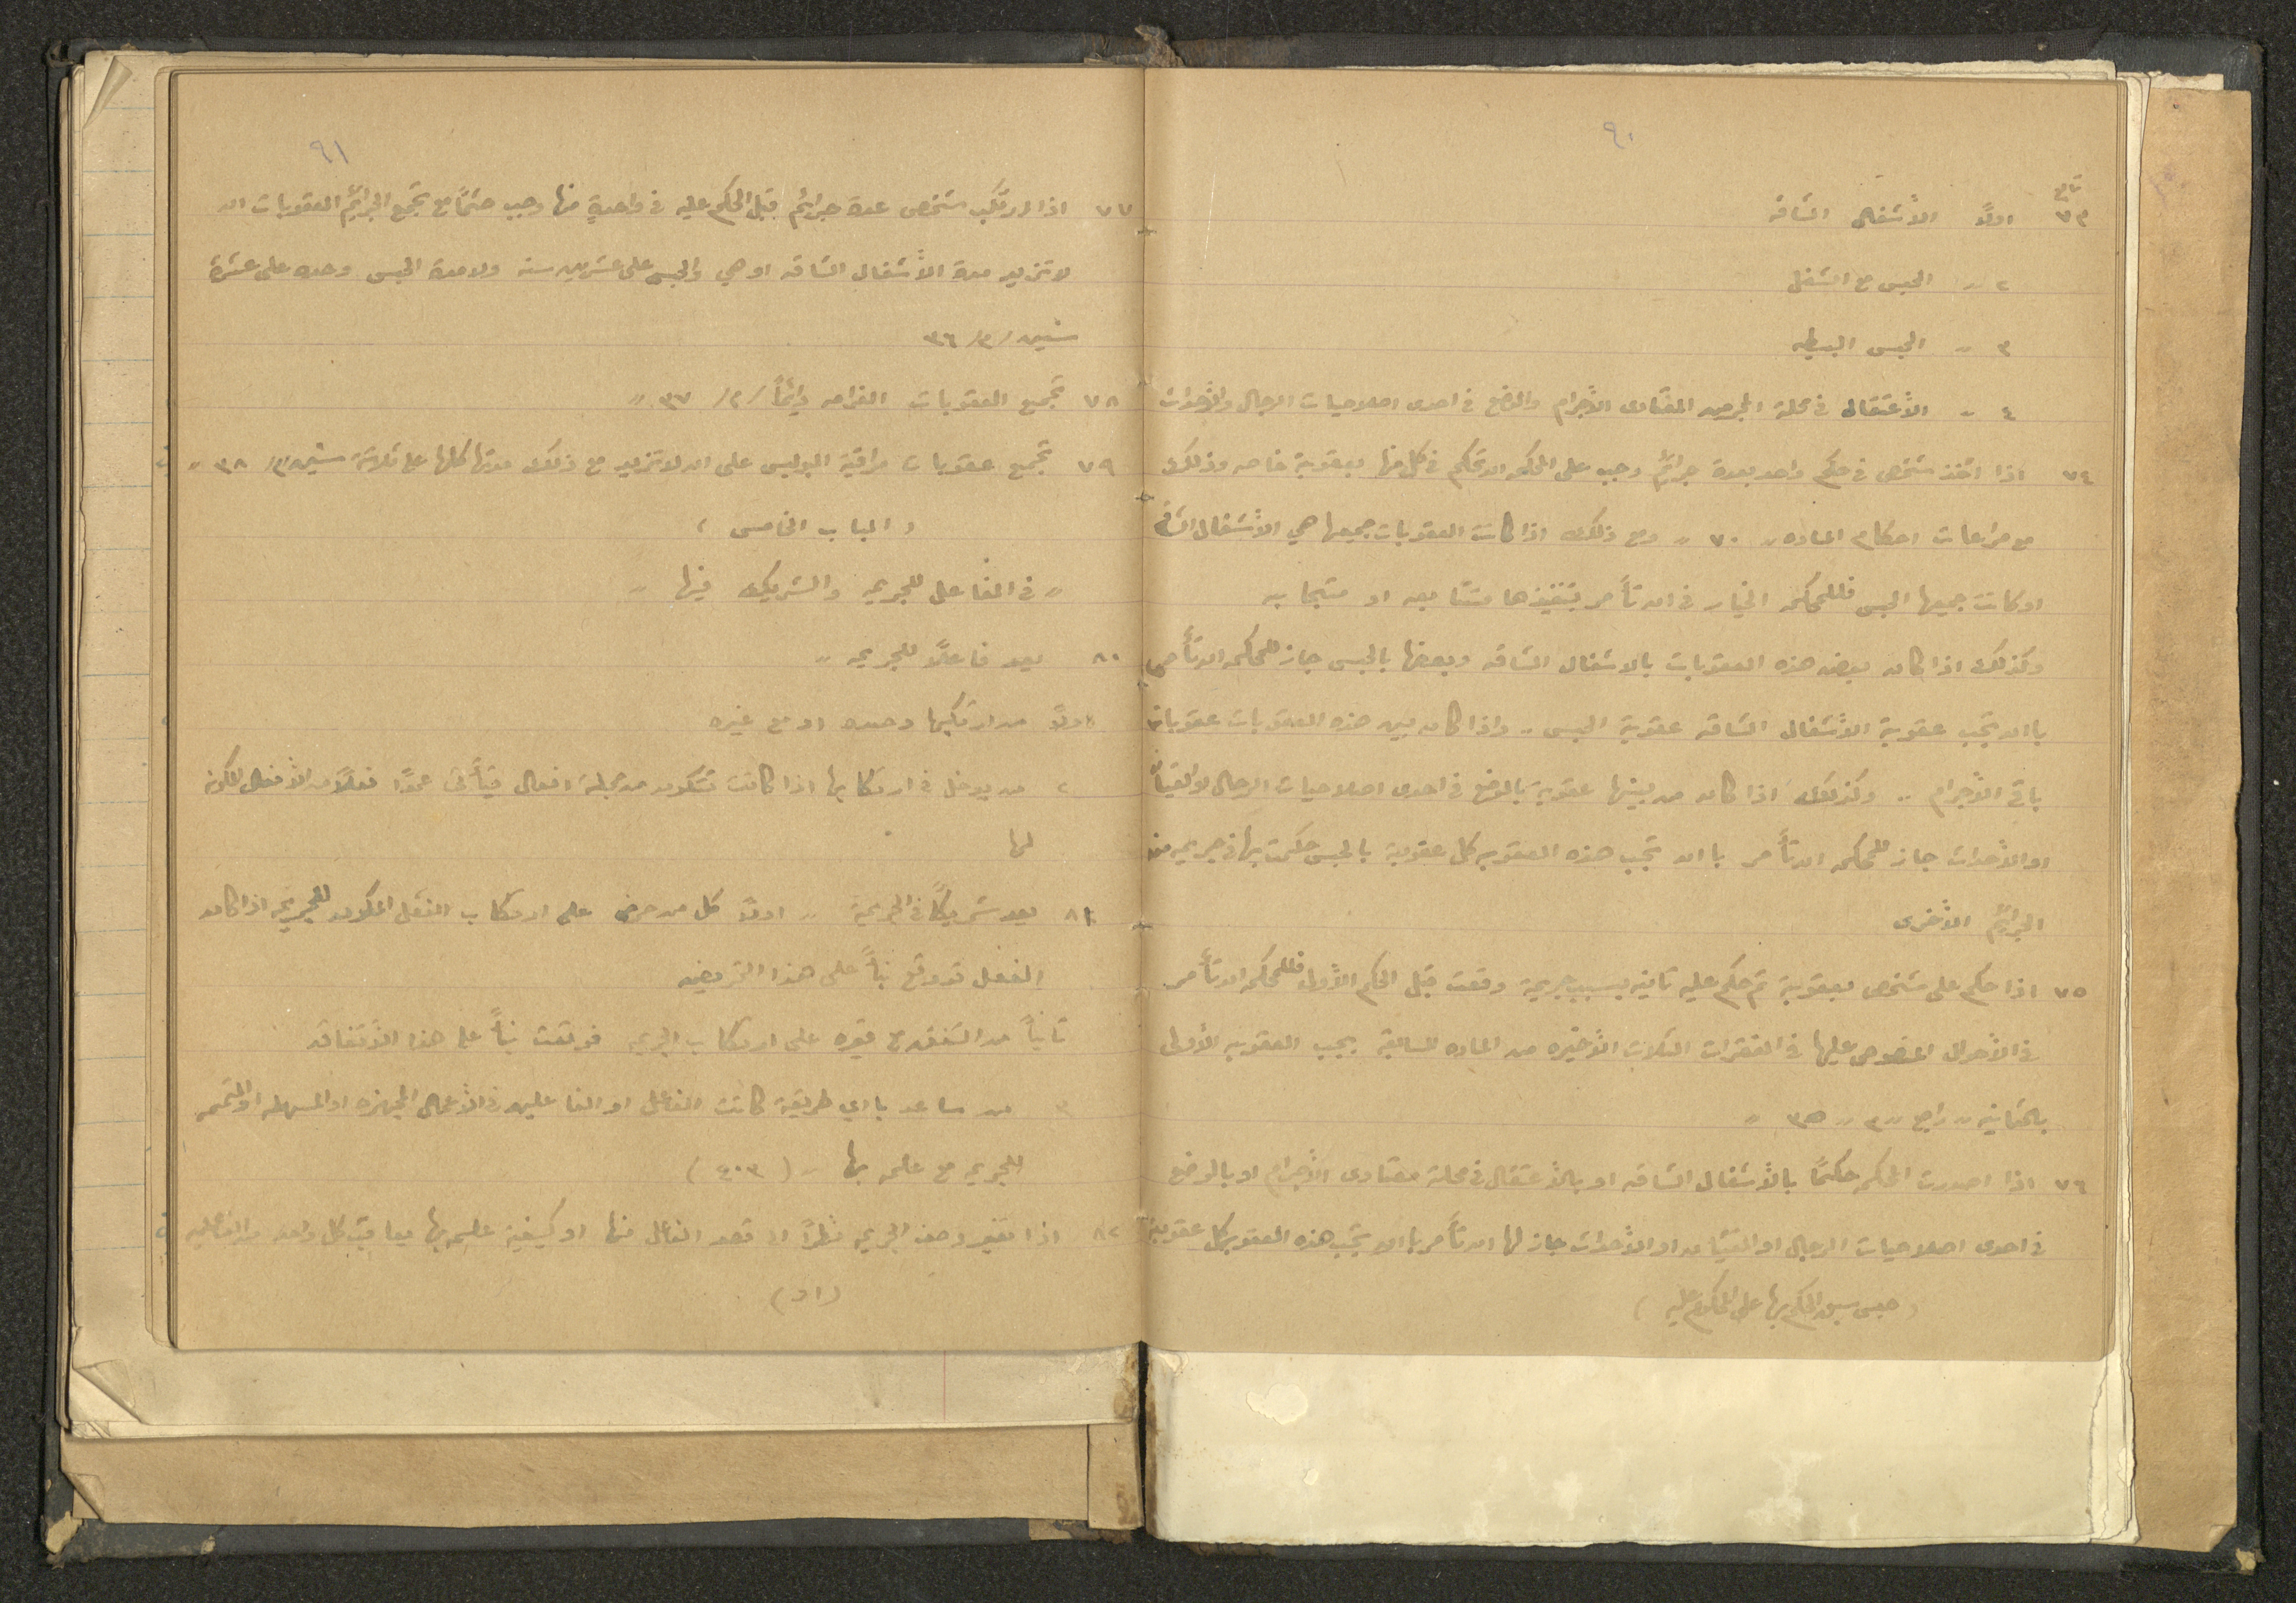 ٩٠
تابع
٧٣ اولاً الأشغال الشاقه
٢ " الحبس مع الشغل
٣ " الحبس البسيط
٤ " الأعتقال في محلة المجرمين المعتادى الأجرام والوضع في احدى اصلاحيات الرجال والأحداث
٧٤ اذا اتخذ شخص في حكم واحد بعدة جرائم وجب على المحكمه ان تحكم في كل منها بعقوبة خاصه وذلك
مع مراعات احكام الماده " ٧٠ " ومع ذلك اذا كانت العقوبات جميعها هي الأشغال الشاقه
او كانت جميعها الحبس فللمحكمه الخيار في ان تأمر بتنفيذها متتابعه او متجابه
وكذلك اذا كان بعض هذه العقوبات بالاشغال الشاقه وبعضها بالحبس جاز للمحكمه ان تأمر
باان تجب عقوبة الأشغال الشاقه عقوبة الحبس .. واذا كان بين هذه العقوبات عقوبات
باقي الأجرام .. وكذلك اذا كان من بينها عقوبة بالوضع في احدى اصلاحيات الرجال او الفتيان
او الأحداث جاز للمحكمه ان تأمر باان تجب هذه العقوبه كل عقوبة بالحبس حكمت بها في جريمه من
الجرائم الأخرى
٧٥ اذا حكم على شخص بعقوبة ثم حكم عليه ثانيه بسبب جريمة وقعت قبل الحكم الأول فللمحكمه ان تأمر
في الأحوال المنصوص عليها في الفقرات الثلاث الأخيره من الماده السابقة بجب العقوبه الأولى
بالثانيه " راجع " م " ٣٥ "
٧٦ اذا اصدرت المحكمه حكمًا بالأشغال الشاقه او بالأعتقال في محلة معتادى الأجرام او بالوضع
في احدى اصلاحيات الرجال او الفتيان او الأحداث جاز لها ان تأمر باان تجب هذه العقوبه كل عقوبة
(حبس سبق الحكم بها على المحكوم عليه)
٩١
٧٧ اذا ارتكب شخص عدة جرائم قبل الحكم عليه في واحدةٍ منها وجب حتمًا مع تجمع الجرائم العقوبات ان
لا تزيد مدة الأشغال الشاقه او هي والحبس على عشرين سنه ولا مدة الحبس وحده على عشرة
سنين / م / ٣٦
٧٨ تجمع العقوبات الغرامه دائماً / م / ٣٧ "
٧٩ تجمع عقوبات مراقبة البوليس على ان لا تزيد مع ذلك مدتها كلها على ثلاثة سنين / م / ٣٨ "
( الباب الخامس )
" في الفاعل للجريمه والشريك فيها "
٨٠ يعد فاعلاً للجريمه "
اولاً من ارتكبها وحده او مع غيره
٢ من يدخل في ارتكابها اذا كانت تتكون من جملة افعال فيأتى عمدًا فعلاً من الأفعال المكونه
لها
٨١ يعد شريكاً في الجريمة " اولاً كل من حرض على ارتكاب الفعل المكون للجريمه اذا كان
الفعل قد وقع بنأً على هذا التحريض
ثانياً من اتفق مع غيره على ارتكاب الجريمه فوقعت بنأً على هذا الأتفاق
٣ من ساعد بااي طريقة كانت الفاعل او الفاعلين في الأعمال المجهزه او المسهله او المتممه
للجريمه مع علمه بها " (٤٠٣)
٨٢ اذا تغير وصف الجريمه نظراً الى قصد الفاعل منها او كيفية علمه بها يعاقب كل واحد من الفاعلين
(او)